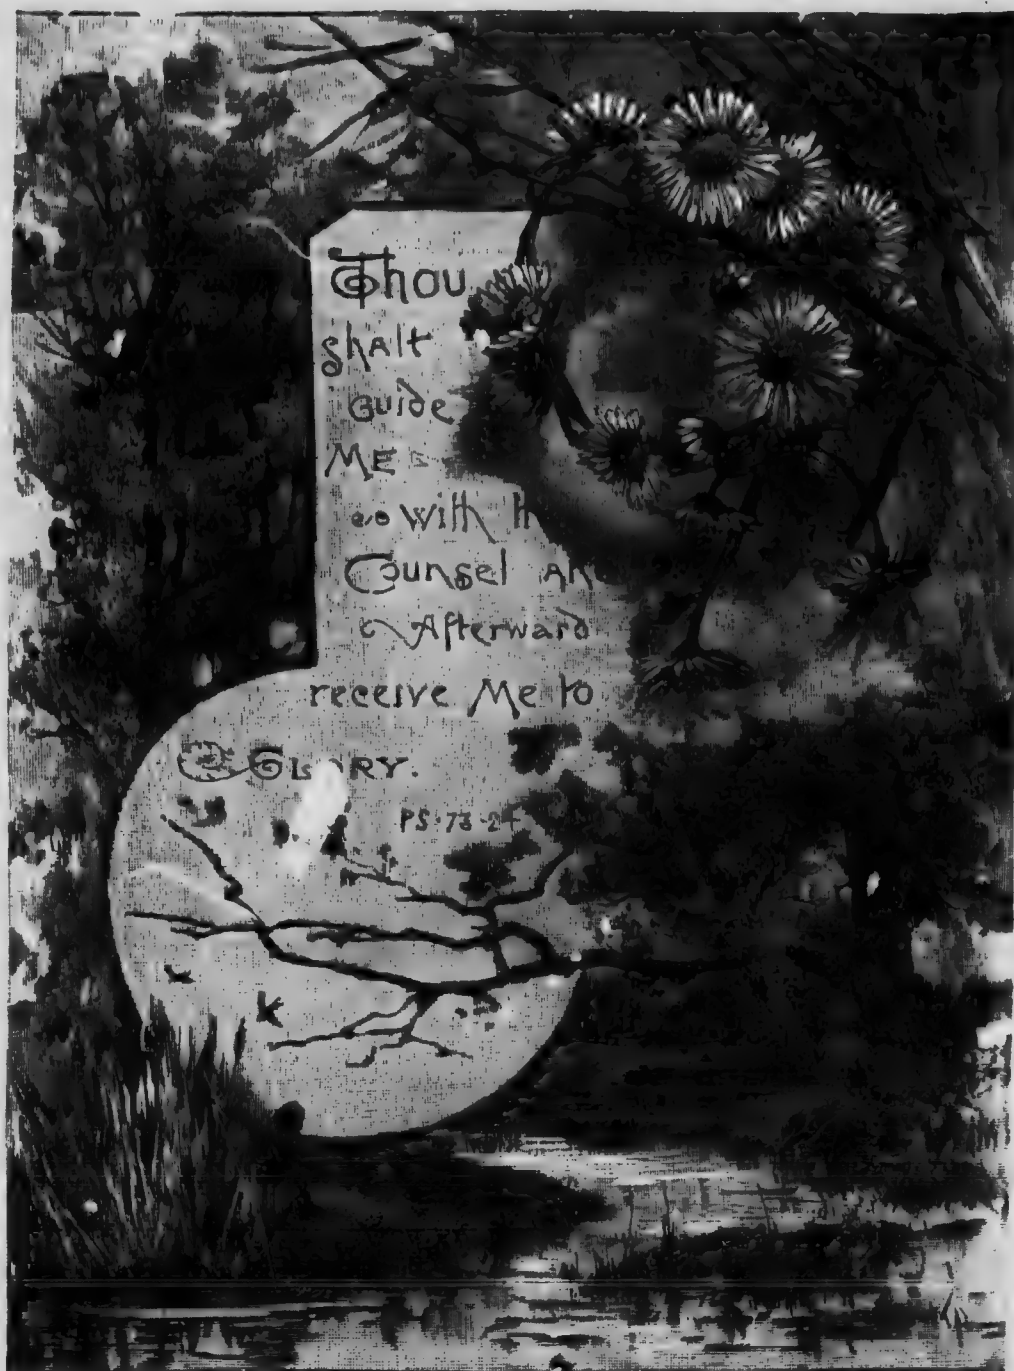 Thou
shalt
Guide
Me
with
Counsel
Afterward
receive Me to
Glory.